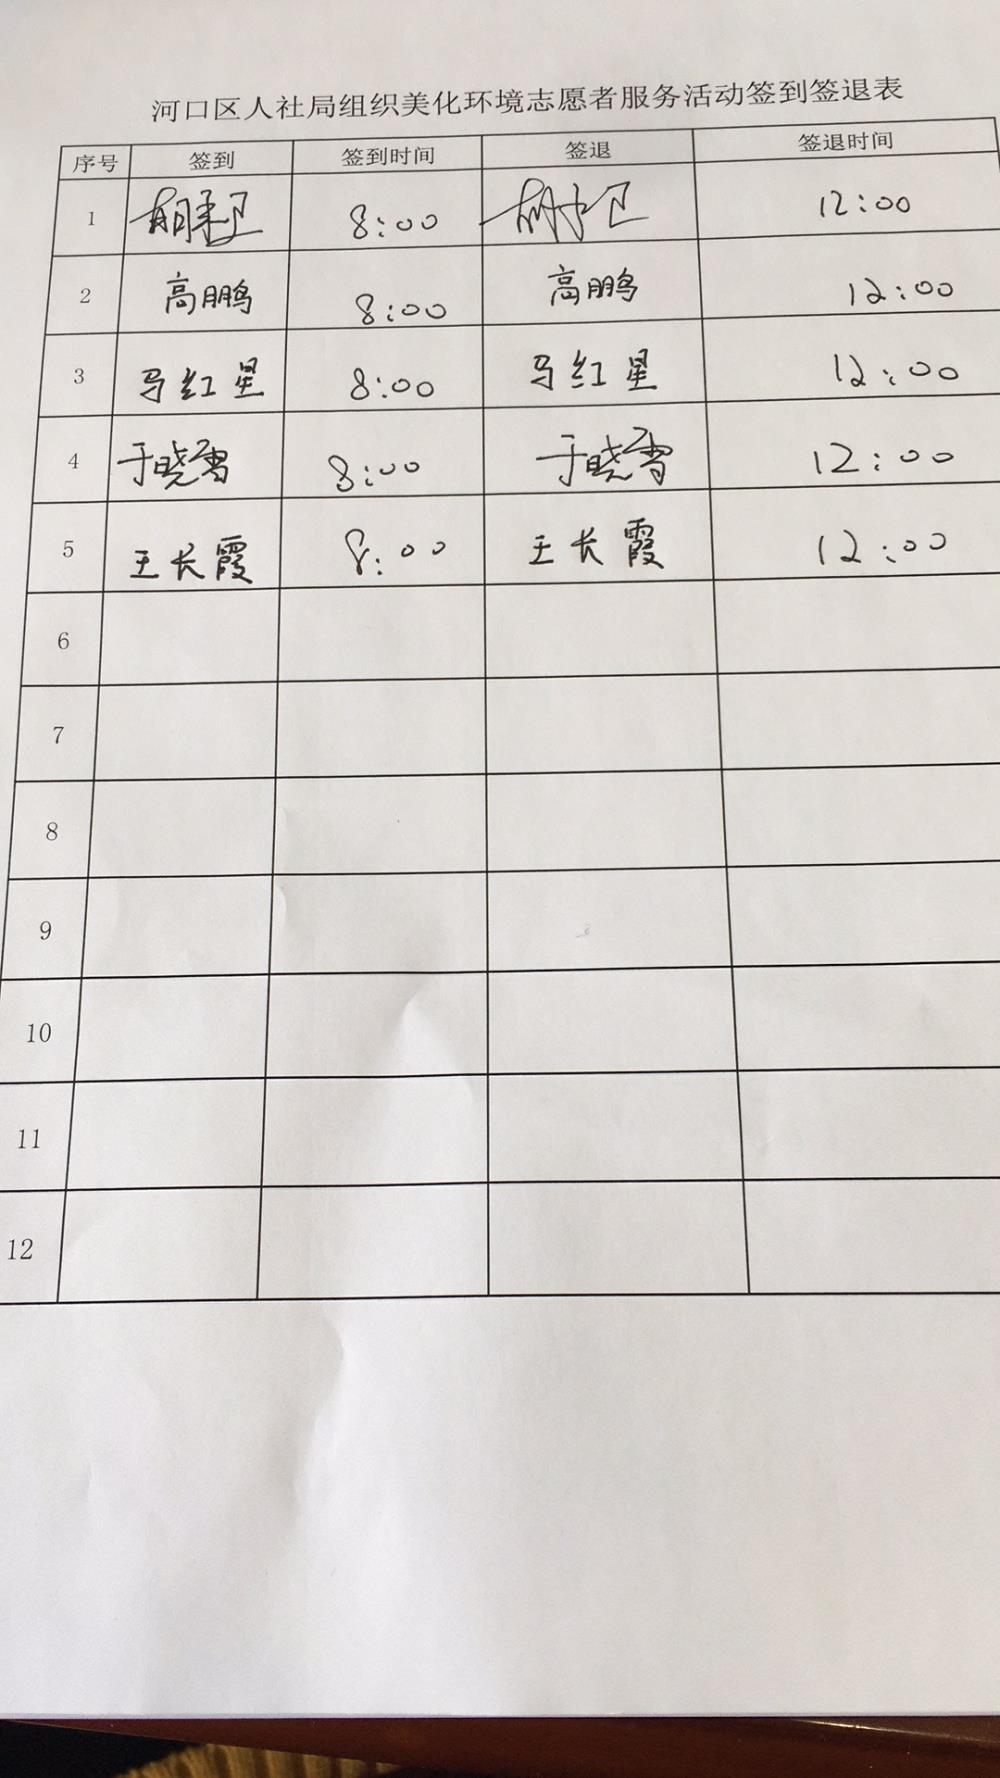 河口区人社局组织美化环境志愿者服务活动签到签退表
序号 签到 签到时间 签退 签退时间
1 8:00 12:00
2 高鹏 8:00 高鹏 12:00
3 马红星 8:00 马红星 12:00
4 于晓雪 8:00 于晓雪 12:00
5 王长霞 8:00 王长霞 12:00
6
7
8
9
10
11
12